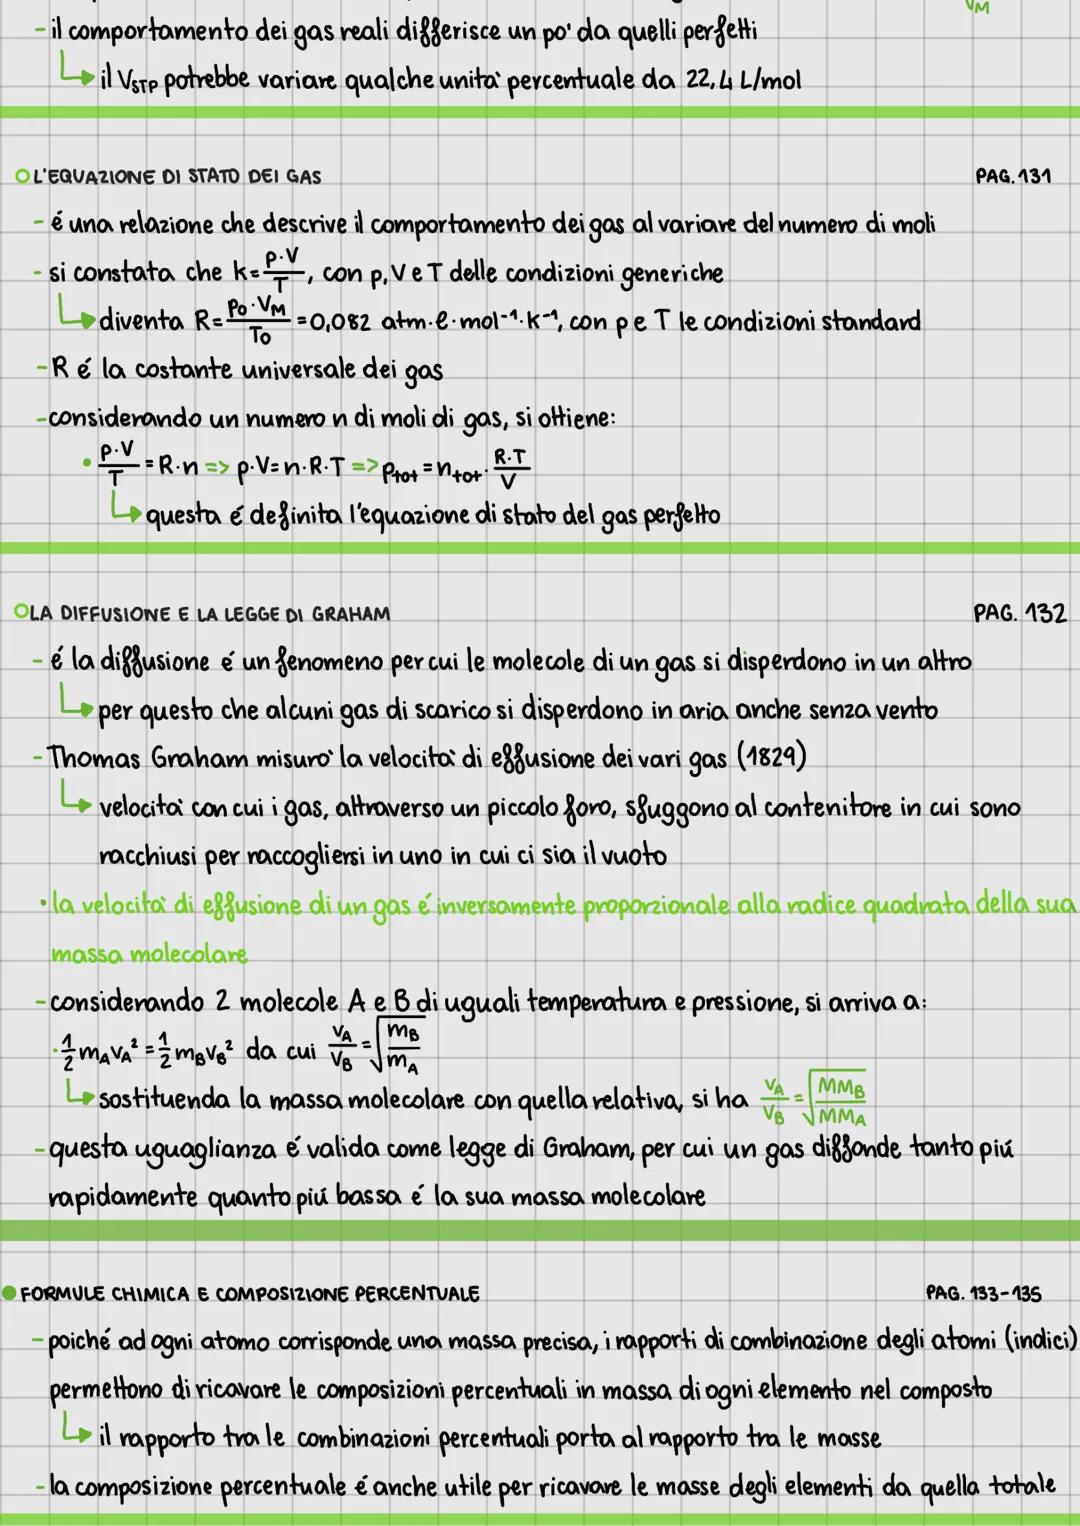 VM
- il comportamento dei gas reali differisce un po' da quelli perfetti
il VSTP potrebbe variare qualche unita' percentuale da 22,4 L/mol
L'EQUAZIONE DI STATO DEI GAS PAG. 131
- é una relazione che descrive il comportamento dei gas al variare del numero di moli
- si constata che k= p·V/T, con p, V e T delle condizioni generiche
diventa R= p0·VM/T0 =0,082 atm·l·mol⁻¹·K⁻¹, con p e T le condizioni standard
- R é la costante universale dei gas
- considerando un numero n di moli di gas, si ottiene:
• p·V/T = R·n => p·V= n·R·T => ptot = ntot · R·T/V
questa é definita l'equazione di stato del gas perfetto
LA DIFFUSIONE E LA LEGGE DI GRAHAM PAG. 132
- é la diffusione é un fenomeno per cui le molecole di un gas si disperdono in un altro
per questo che alcuni gas di scarico si disperdono in aria anche senza vento
- Thomas Graham misuro' la velocita' di effusione dei vari gas (1829)
velocita' con cui i gas, attraverso un piccolo foro, sfuggono al contenitore in cui sono
racchiusi per raccogliersi in uno in cui ci sia il vuoto
• la velocita' di effusione di un gas é inversamente proporzionale alla radice quadrata della sua
massa molecolare
- considerando 2 molecole A e B di uguali temperatura e pressione, si arriva a:
· 1/2 mAvA² = 1/2 mBvB² da cui vA/vB = √mB/mA
sostituenda la massa molecolare con quella relativa, si ha vA/vB = √MMB/MMA
- questa uguaglianza é valida come legge di Graham, per cui un gas diffonde tanto piú
rapidamente quanto piú bassa é la sua massa molecolare
FORMULE CHIMICA E COMPOSIZIONE PERCENTUALE PAG. 133-135
- poiché ad ogni atomo corrisponde una massa precisa, i rapporti di combinazione degli atomi (indici)
permettono di ricavare le composizioni percentuali in massa di ogni elemento nel composto
il rapporto tra le combinazioni percentuali porta al rapporto tra le masse
- la composizione percentuale é anche utile per ricavare le masse degli elementi da quella totale